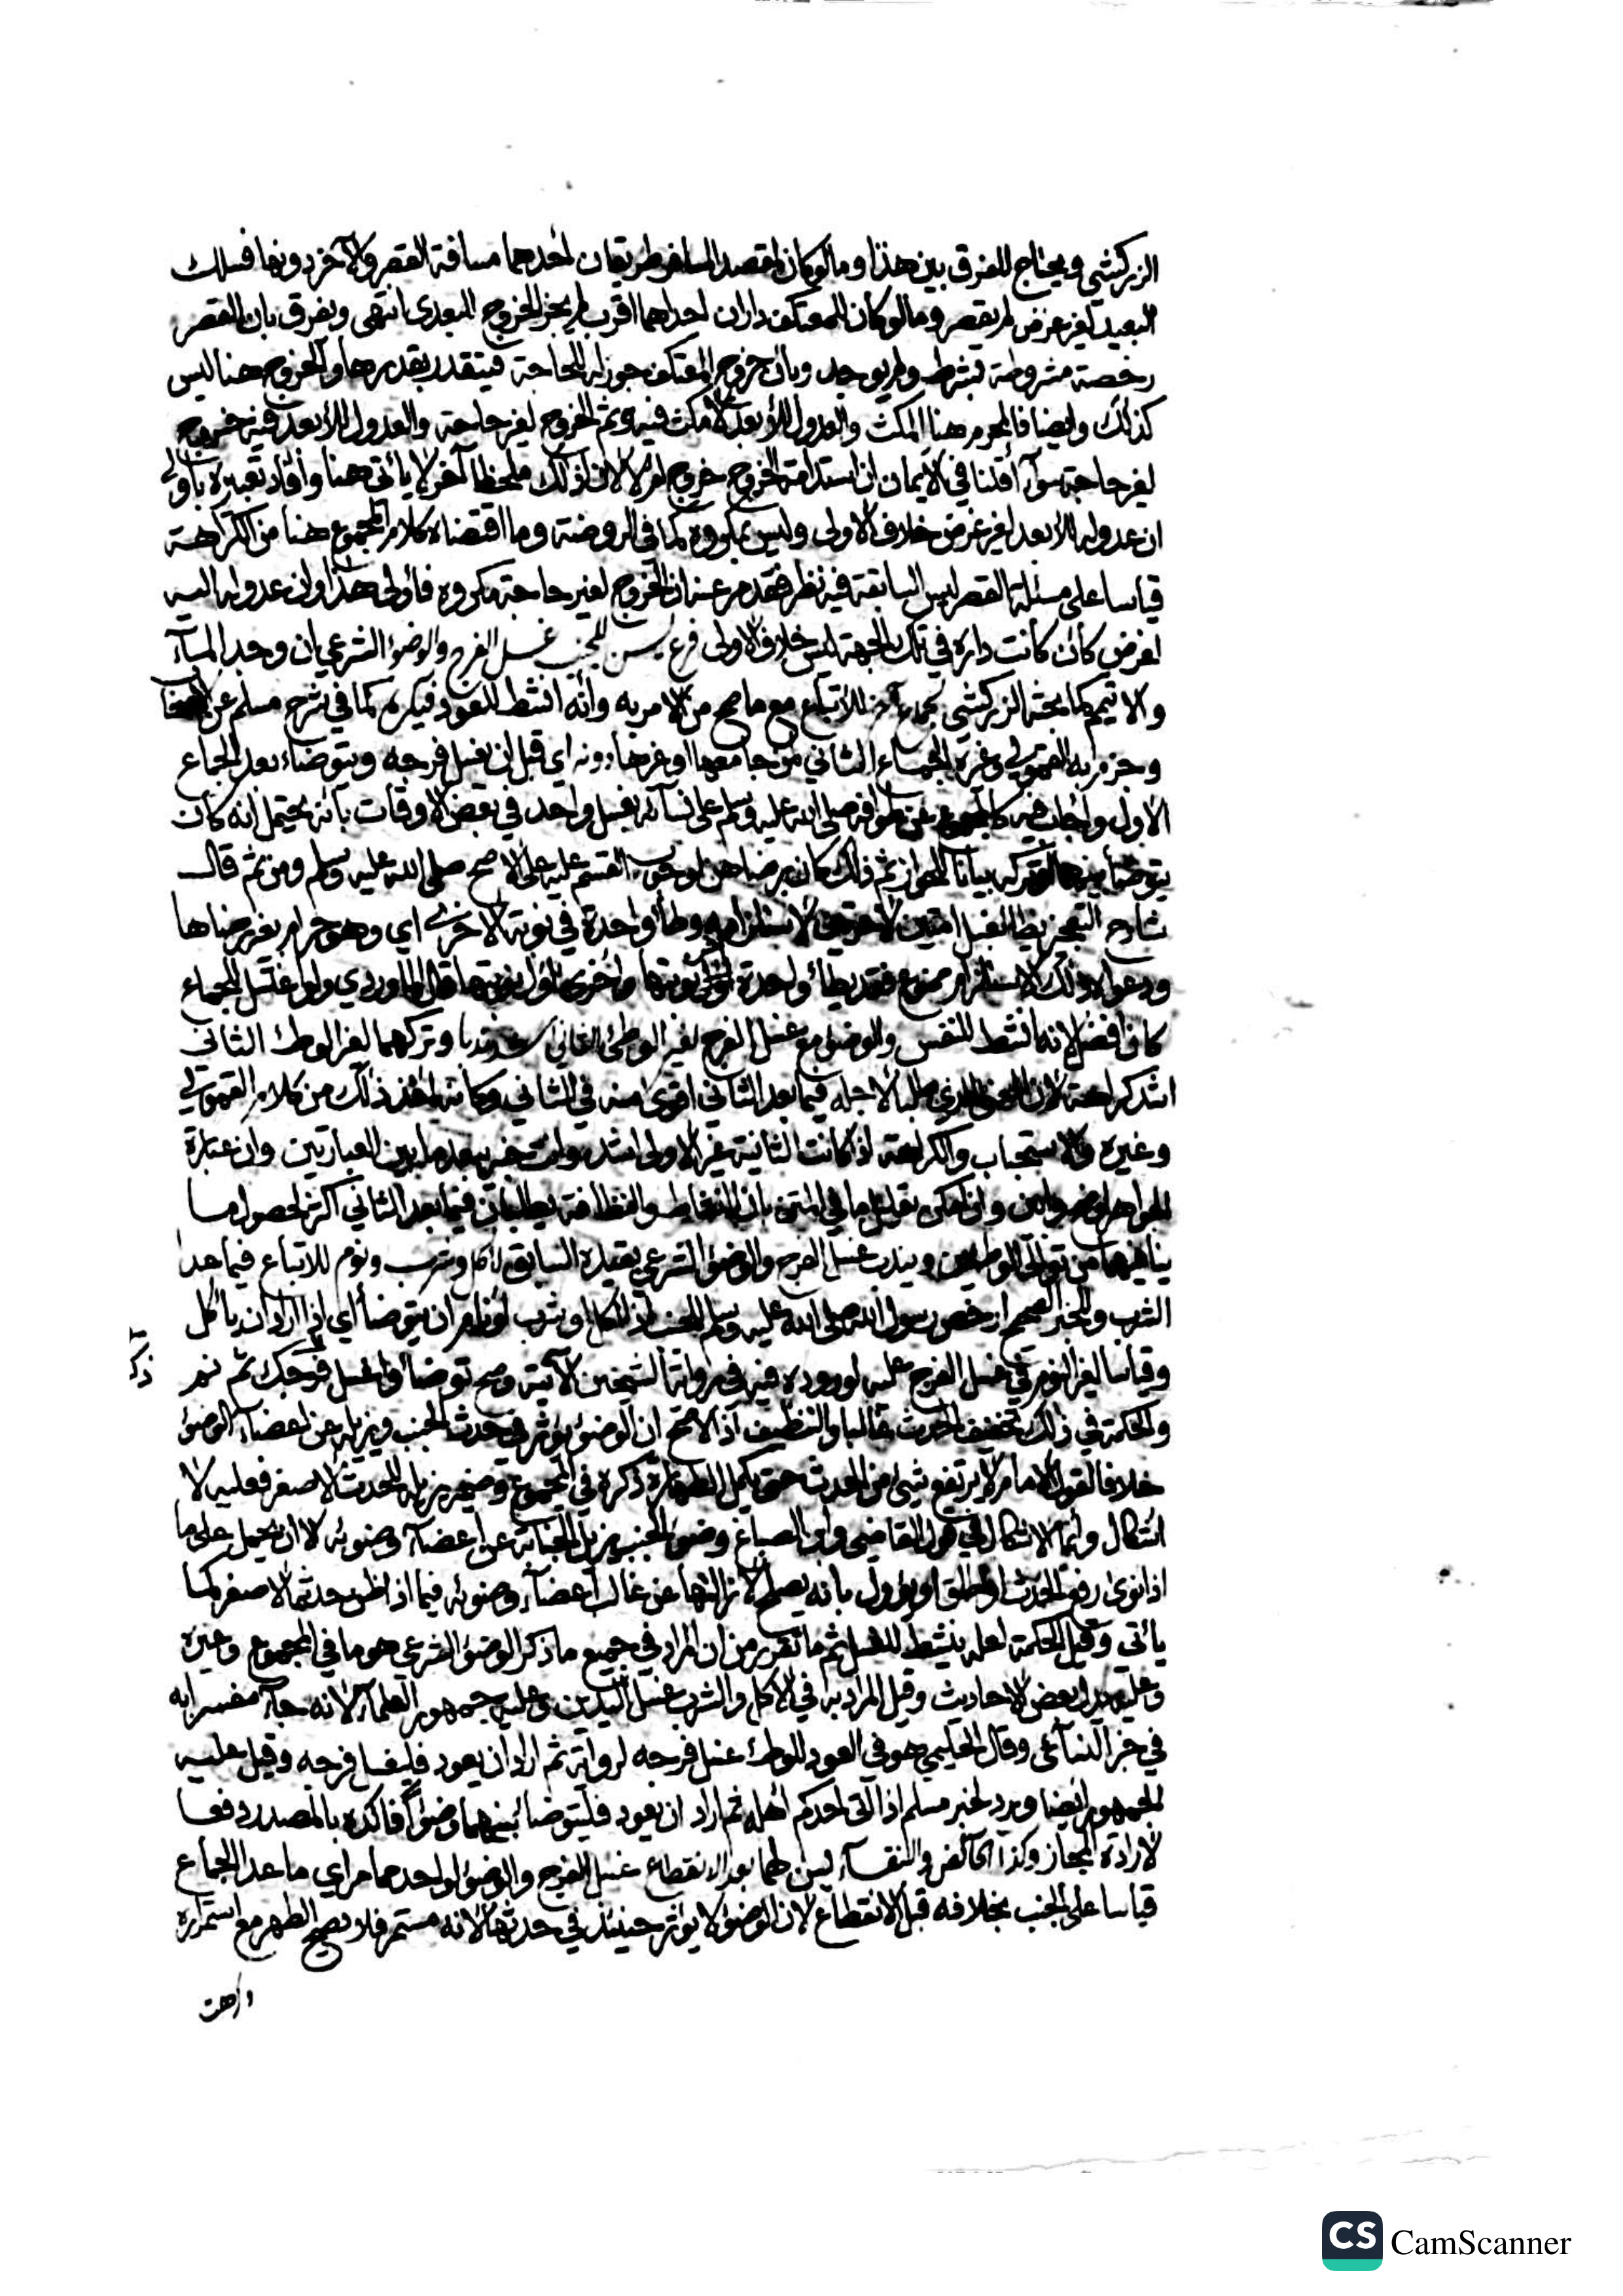 الزركشي ويحتاج للفرق بين هذا وما لو كان لمقصد المسافر طريقان لأحدهما مسافة القصر والآخر دونها فسلك
البعيد لغير غرض لم يقصر وما لو كان للمعتكف داران احداهما اقرب لم يجز الخروج للبعدى انتهى ويفرق بان القصر
رخصة مشروطة بشرط ولم يوجد وبان خروج المعتكف جوز له للحاجة فيتقدر بقدرها والخروج هنا ليس
كذلك وايضا فالمحرم هنا المكث والعدول للأبعد لا مكث فيه وثم الخروج لغير حاجة والعدول للأبعد فيه خروج
لغير حاجة سوآء أقلنا في الايمان ان استدامة الخروج خروج ام لا لان لذلك ملحظا آخر لا يأتي هنا وأفاد تعبيره بأولى
ان عدوله للأبعد لغير غرض خلاف الاولى وليس بمكروه كما في الروضة وما اقتضاه كلام المجموع هنا من الكراهة
قياسا على مسئلة القصر السابقة فيه نظر فقد مر عنه ان الخروج لغير حاجة مكروه فأولى هذا وان عدوله اليه
لغرض كأن كانت داره في تلك الجهة ليس خلاف الاولى فرع يسن للجنب غسل الفرج والوضوء الشرعي ان وجد المآء
والا تيمم كما بحثه الزركشي لجماع آخر للاتباع مع ما صح من الامر به وأنه انشط للعود فيكره كما في شرح مسلم عن
وجزم به القمولي وغيره الجماع الثاني من جامعها او غيرها دونه اي قبل ان يغسل فرجه ويتوضاء بعد الجماع
الاول وأجاب في المجموع عن طوافه صلى الله عليه وسلم على نسآئه بغسل واحد في بعض الاوقات بأنه يحتمل انه كان
يتوضأ بينها او تركه بيانا للجواز ثم ذلك كان برضاهن لوجوب القسم عليه على الاصح صلى الله عليه وسلم ومن ثم قال
شارح التعجيز لاستلزامه وطأ واحدة في نوبة الاخرى اي وهو حرام بغير رضاها
ودعواه ذلك الاستلزام ممنوع فقد يطأ واحدة نوبتها وأخرى اول نوبتها قال الماوردي ولو اغتسل للجماع
كان افضل لانه انشط للنفس والوضوء مع غسل الفرج لغير الوطئ الثاني اشد ندبا وتركهما لغير الوطئ الثاني
اشد كراهة لان المعنى الذي طلبا لاجله فيما بعد الثاني اقوى منه في الثاني وكأنه أخذ ذلك من كلام القمولي
وغيره والاستحباب والكراهة اذا كانت الثانية غير الاولى اشد وانت خبير ببعد ما بين العبارتين وان عبارة
الجواهر وان امكن ما في المتن بان النشاط والنظافة يطلبان فيما بعد الثاني اكثر لحصول ما
ينافيهما من توالي الوطئين ويندب غسل الفرج والوضوء الشرعي بقيده السابق لأكل وشرب ونوم للاتباع فيما عدا
الشرب وللخبر الصحيح ارخص رسول الله صلى الله عليه وسلم للجنب اذا أكل او شرب او نام ان يتوضأ أي اذا اراد ان يأكل
وقياسا لغير النوم في غسل الفرج عليه لوروده فيه في رواية الشيخين الآتية وصح توضأ واغسل فرجك ثم نم
والحكمة في ذلك تخفيف الحدث غالبا والتنظيف اذ الاصح ان الوضوء يؤثر في حدث الجنب ويزيله عن اعضاء الوضوء
خلافا لقول الامام لا يرتفع شيئ من الحدث حتى يكمل الطهارة ذكره في المجموع وضمير يزيله للحدث الاصغر فعليه لا
اشكال وانما الاشكال في قول القاضي وابن الصباغ وضوء الجنب يزيل الجنابة عن اعضآء وضوئه لا ان يحمل على ما
اذا نوى رفع الحدث او اطلق او يؤول بانه يصلح لازالتها عن غالب اعضآء وضوئه فيما اذا ظن حدثه الاصغر كما
يأتي وقيل الحكمة لعله ينشط للغسل ثم ما تقرر من ان المراد في جميع ما ذكر الوضوء الشرعي هو ما في المجموع وغيره
وعليه يدل بعض الاحاديث وقيل المراد به في الاكل والشرب غسل اليدين وعليه جمهور العلمآء لانه جآء مفسرا به
في خبر النسآئي وقال الحليمي هو في العود للوطء غسل فرجه لرواية ثم اراد ان يعود فليغسل فرجه وقيل عليه
الجمهور أيضا ويرد لخبر مسلم اذا اتى احدكم أهله ثم اراد ان يعود فليتوضأ بينهما وضوأ فاكده بالمصدر دفعا
لارادة المجاز وكذا الحآئض والنفسآء يسن لهما بعد الانقطاع غسل الفرج والوضوء لواحد مما مر اي ما عدا الجماع
قياسا على الجنب بخلافه قبل الانقطاع لان الوضوء لا يؤثر حينئذ في حدثها لانه مستمر فلا يصح الطهر مع استمراره
CS CamScanner